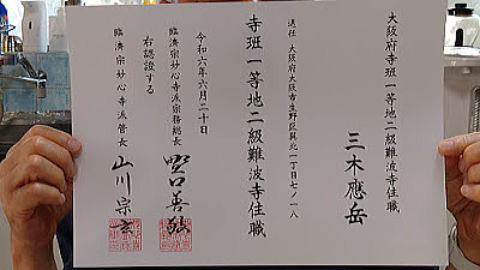 大阪府寺班一等地二級難波寺住職
三木應岳
選任 大阪府大阪市生野区巽北一丁目七ノ一八
寺班一等地二級難波寺住職
令和六年六月二十日
臨済宗妙心寺派宗務総長
野口善敬
右認証する
臨済宗妙心寺派管長
山川宗玄